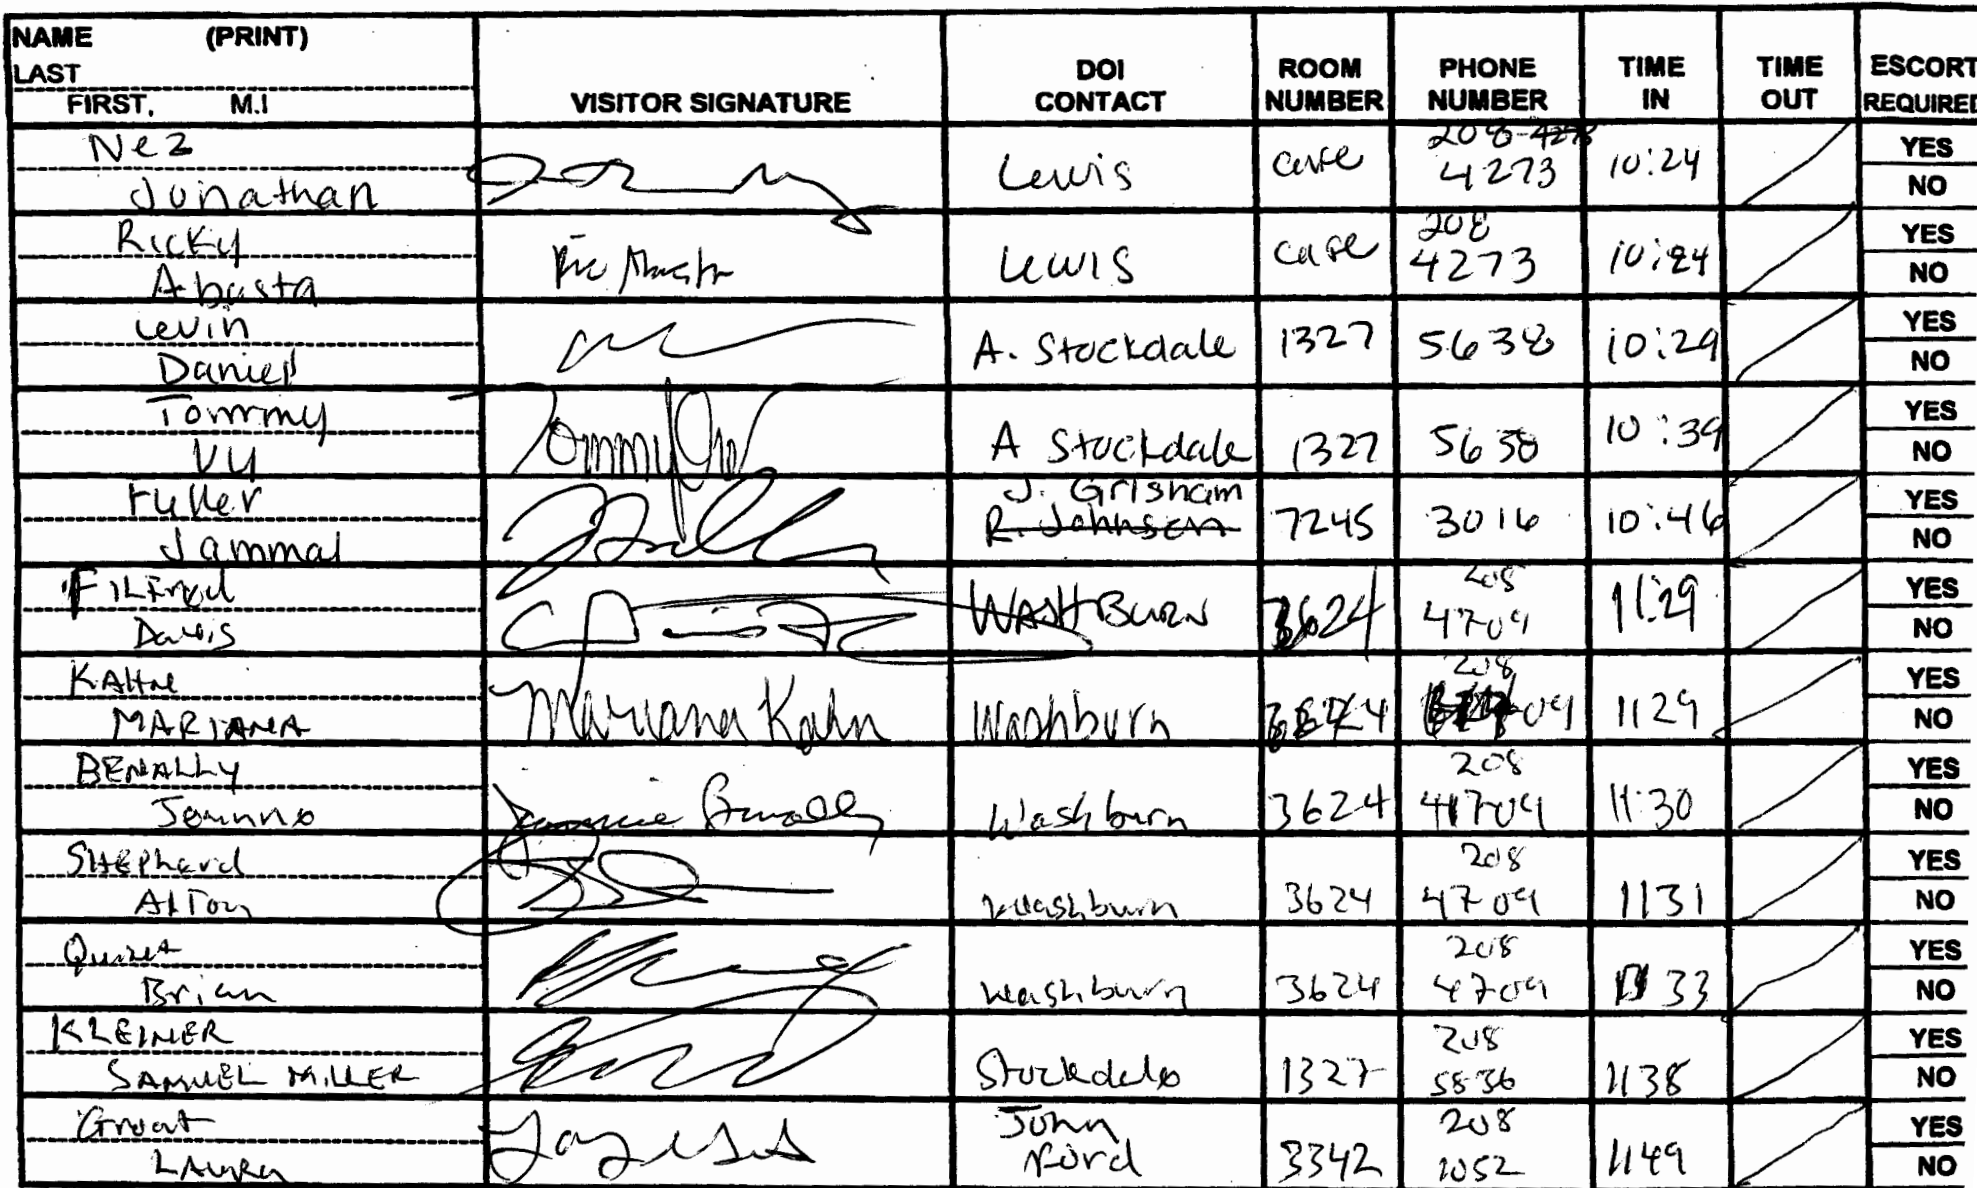 NAME (PRINT)
LAST
FIRST, M.I
VISITOR SIGNATURE
DOI CONTACT
ROOM NUMBER
PHONE NUMBER
TIME IN
TIME OUT
ESCORT REQUIRED
Nez
Jonathan
Lewis
208-4273
4273
10:24
YES
NO
Ricky
Abasta
Lewis
208
4273
10:24
YES
NO
Levin
Daniel
A. Stockdale 1327 5638 10:29
YES
NO
Tommy
Vy
Tommy
A Stockdale 1327 5638 10:39
YES
NO
Fuller
Jammal
J. Grisham
R. Johnson
7245 3016 10:46
YES
NO
Filfred
Davis
WASHBURN 3624
208
4709
11:29
YES
NO
MARIANA
Mariana Kahn
Washburn
208
1129
YES
NO
BENALLY
Benally
Washburn 3624
208
4709
11:30
YES
NO
SHEPherd
AlTon
Washburn 3624
208
4709
1131
YES
NO
Brian
Washburn 3624
208
4709
33
YES
NO
KLEINER
SAMUEL MILLER
Stockdale 1327
208
5836
1138
YES
NO
Groat
LAURA
John
Ford
3342
208
1052
1149
YES
NO